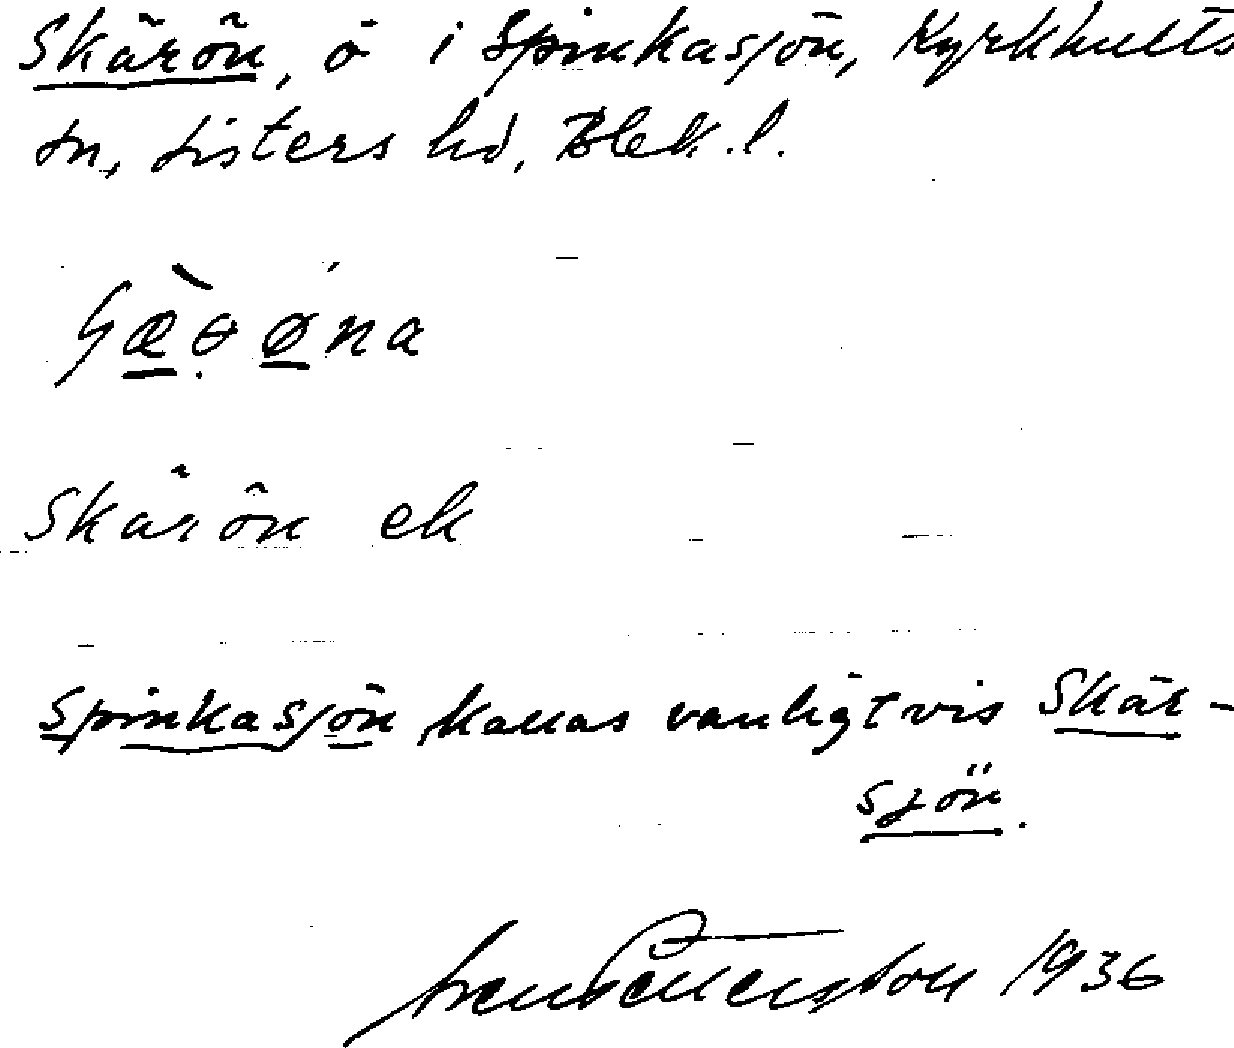 Skärön, ö i Spinkasjön, Kyrkhults
sn, Listers hd, Blek. l.
Skärön ek
Spinkasjön kallas vanligtvis Skär-
sjön.
1936